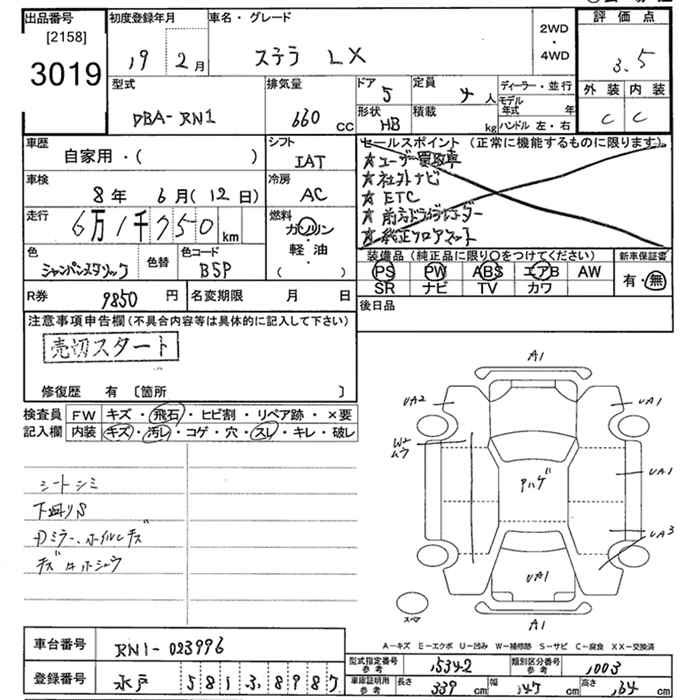 出品番号
[2158]
3019
初度登録年月
19 2月
車名・グレード
ステラ LX
2WD
・
4WD
評価点
3.5
外装 内装
C C
型式
DBA-RN1
排気量
660 CC
ドア 5
定員 4 人
形状 HB
積載 kg
ディーラー・並行
モデル年式 年
ハンドル 左・右
車歴
自家用・( )
シフト
IAT
セールスポイント (正常に機能するものに限ります)
★ユーザー買取車
★社外ナビ
★ETC
★前方ドライブレコーダー
★純正フロアマット
車検
8年 6月(12日)
冷房
AC
走行
6万1千750km
燃料
ガソリン
・
軽・油
( )
色
シャンパンメタリック
色替
色コード
B5P
装備品 (純正品に限り○をつけてください)
PS PW ABS エアB AW
SR ナビ TV カワ
新車保証書
有・無
R券 9850 円
名変期限 月 日
後日品
注意事項申告欄(不具合内容等は具体的に記入して下さい)
売切スタート
修復歴 有〔箇所 〕
検査員
記入欄
FW キズ・飛石・ヒビ割・リペア跡・×要
内装 キズ・汚レ・コゲ・穴・スレ・キレ・破レ
シートシミ
下回りS
Dミラー、ホイルキズ
キズ 小ホシュウ
A1
UA2
UA1
W2
ムラ
UA1
アハゲ
UA3
UA1
スペア
A1
A-キズ E-エクボ U-凹み W-補修跡 S-サビ C-腐食 XX-交換済
車台番号
RN1-023996
登録番号
水戸 581 3 8987
型式指定番号
参考
15342
類別区分番号
参考
1003
車庫証明用
参考
長さ 339 cm
幅 147 cm
高さ 164 cm